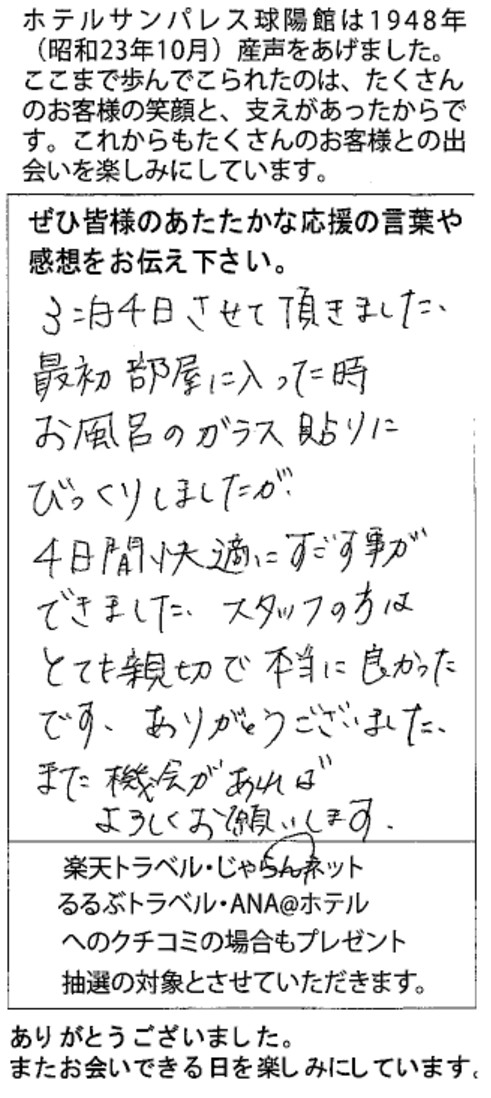 ホテルサンパレス球陽館は1948年
（昭和23年10月）産声をあげました。
ここまで歩んでこられたのは、たくさん
のお客様の笑顔と、支えがあったからで
す。これからもたくさんのお客様との出
会いを楽しみにしています。
ぜひ皆様のあたたかな応援の言葉や
感想をお伝え下さい。
3泊4日させて頂きました、
最初部屋に入った時
お風呂のガラス貼りに
びっくりしましたが、
4日間快適にすごす事が
できました、スタッフの方は
とても親切で本当に良かった
です、ありがとうございました、
また機会があれば
よろしくお願いします.
楽天トラベル・じゃらんネット
るるぶトラベル・ANA@ホテル
へのクチコミの場合もプレゼント
抽選の対象とさせていただきます。
ありがとうございました。
またお会いできる日を楽しみにしています。